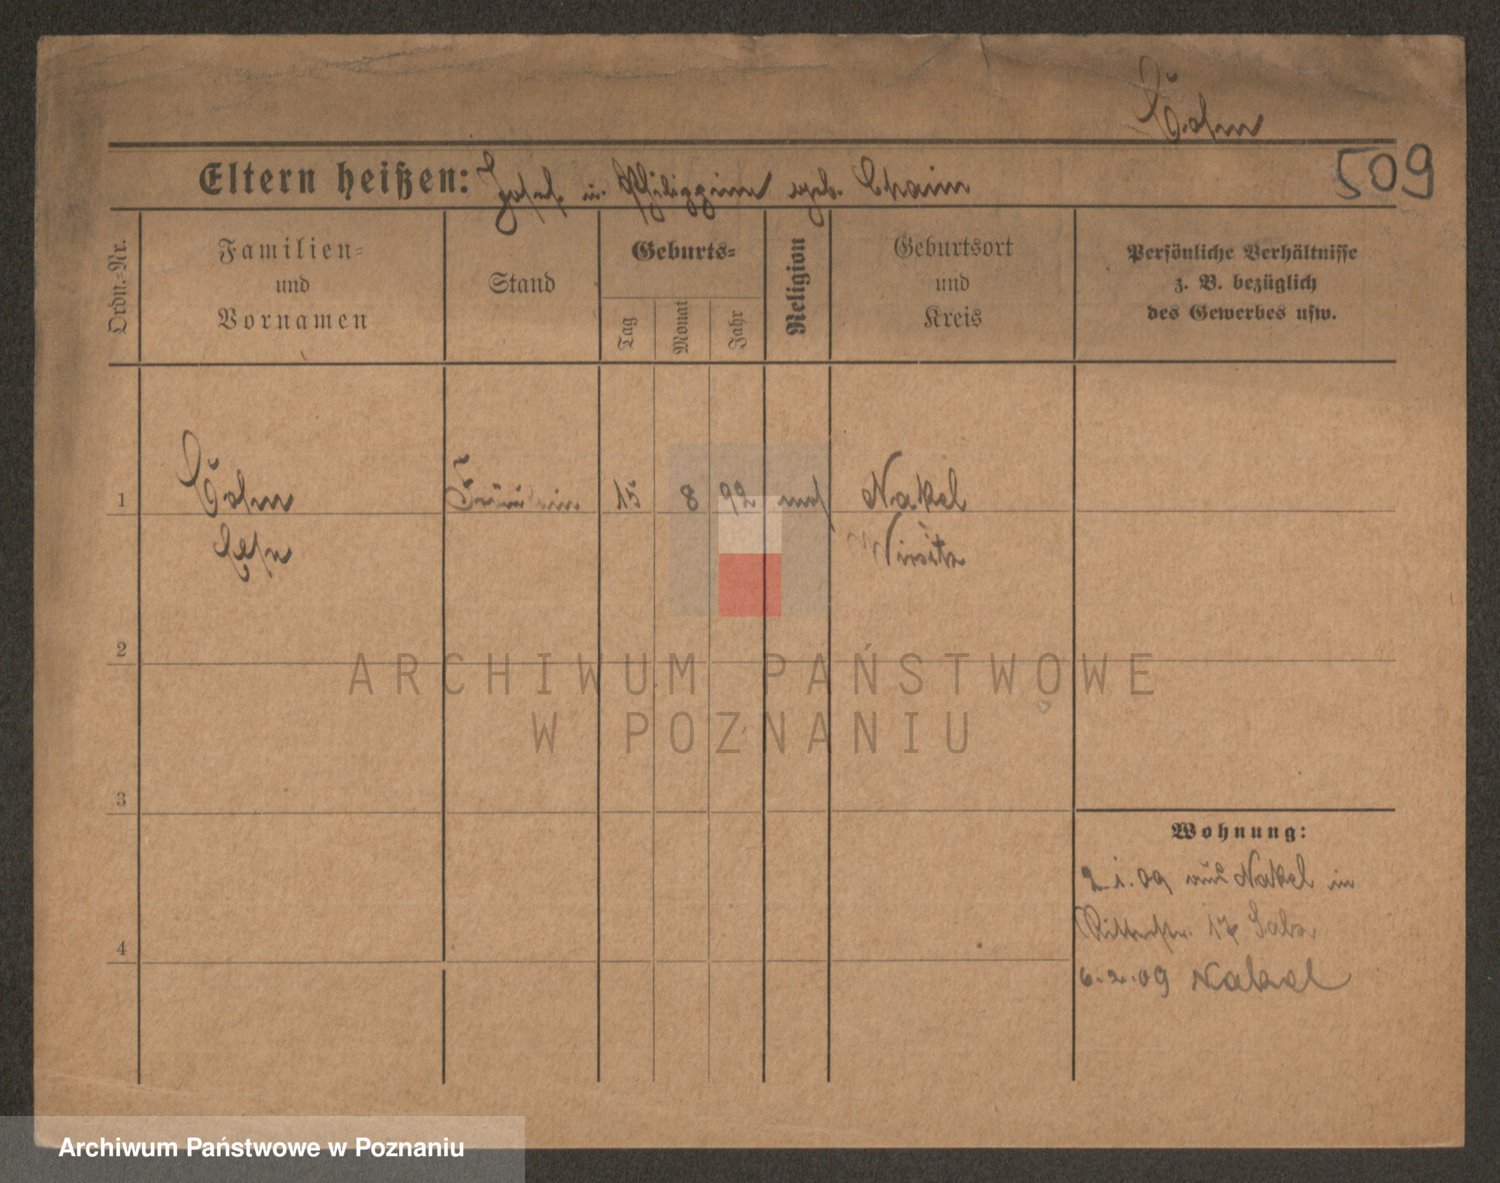 Cohn
509
Eltern heißen: Josef u. Philippine geb. Chaim
Ordn.-Nr.
Familien-
und
Vornamen
Stand
Geburts-
Tag
Monat
Jahr
Religion
Geburtsort
und
Kreis
Persönliche Verhältnisse
z. B. bezüglich
des Gewerbes usw.
1 Cohn Fräulein 15 8 92 mos Nakel
Wirsitz
2
3
4
Wohnung:
2.1.09 aus Nakel in
Ritterstr. 17
6.2.09 Nakel
ARCHIWUM PAŃSTWOWE
W POZNANIU
Archiwum Państwowe w Poznaniu